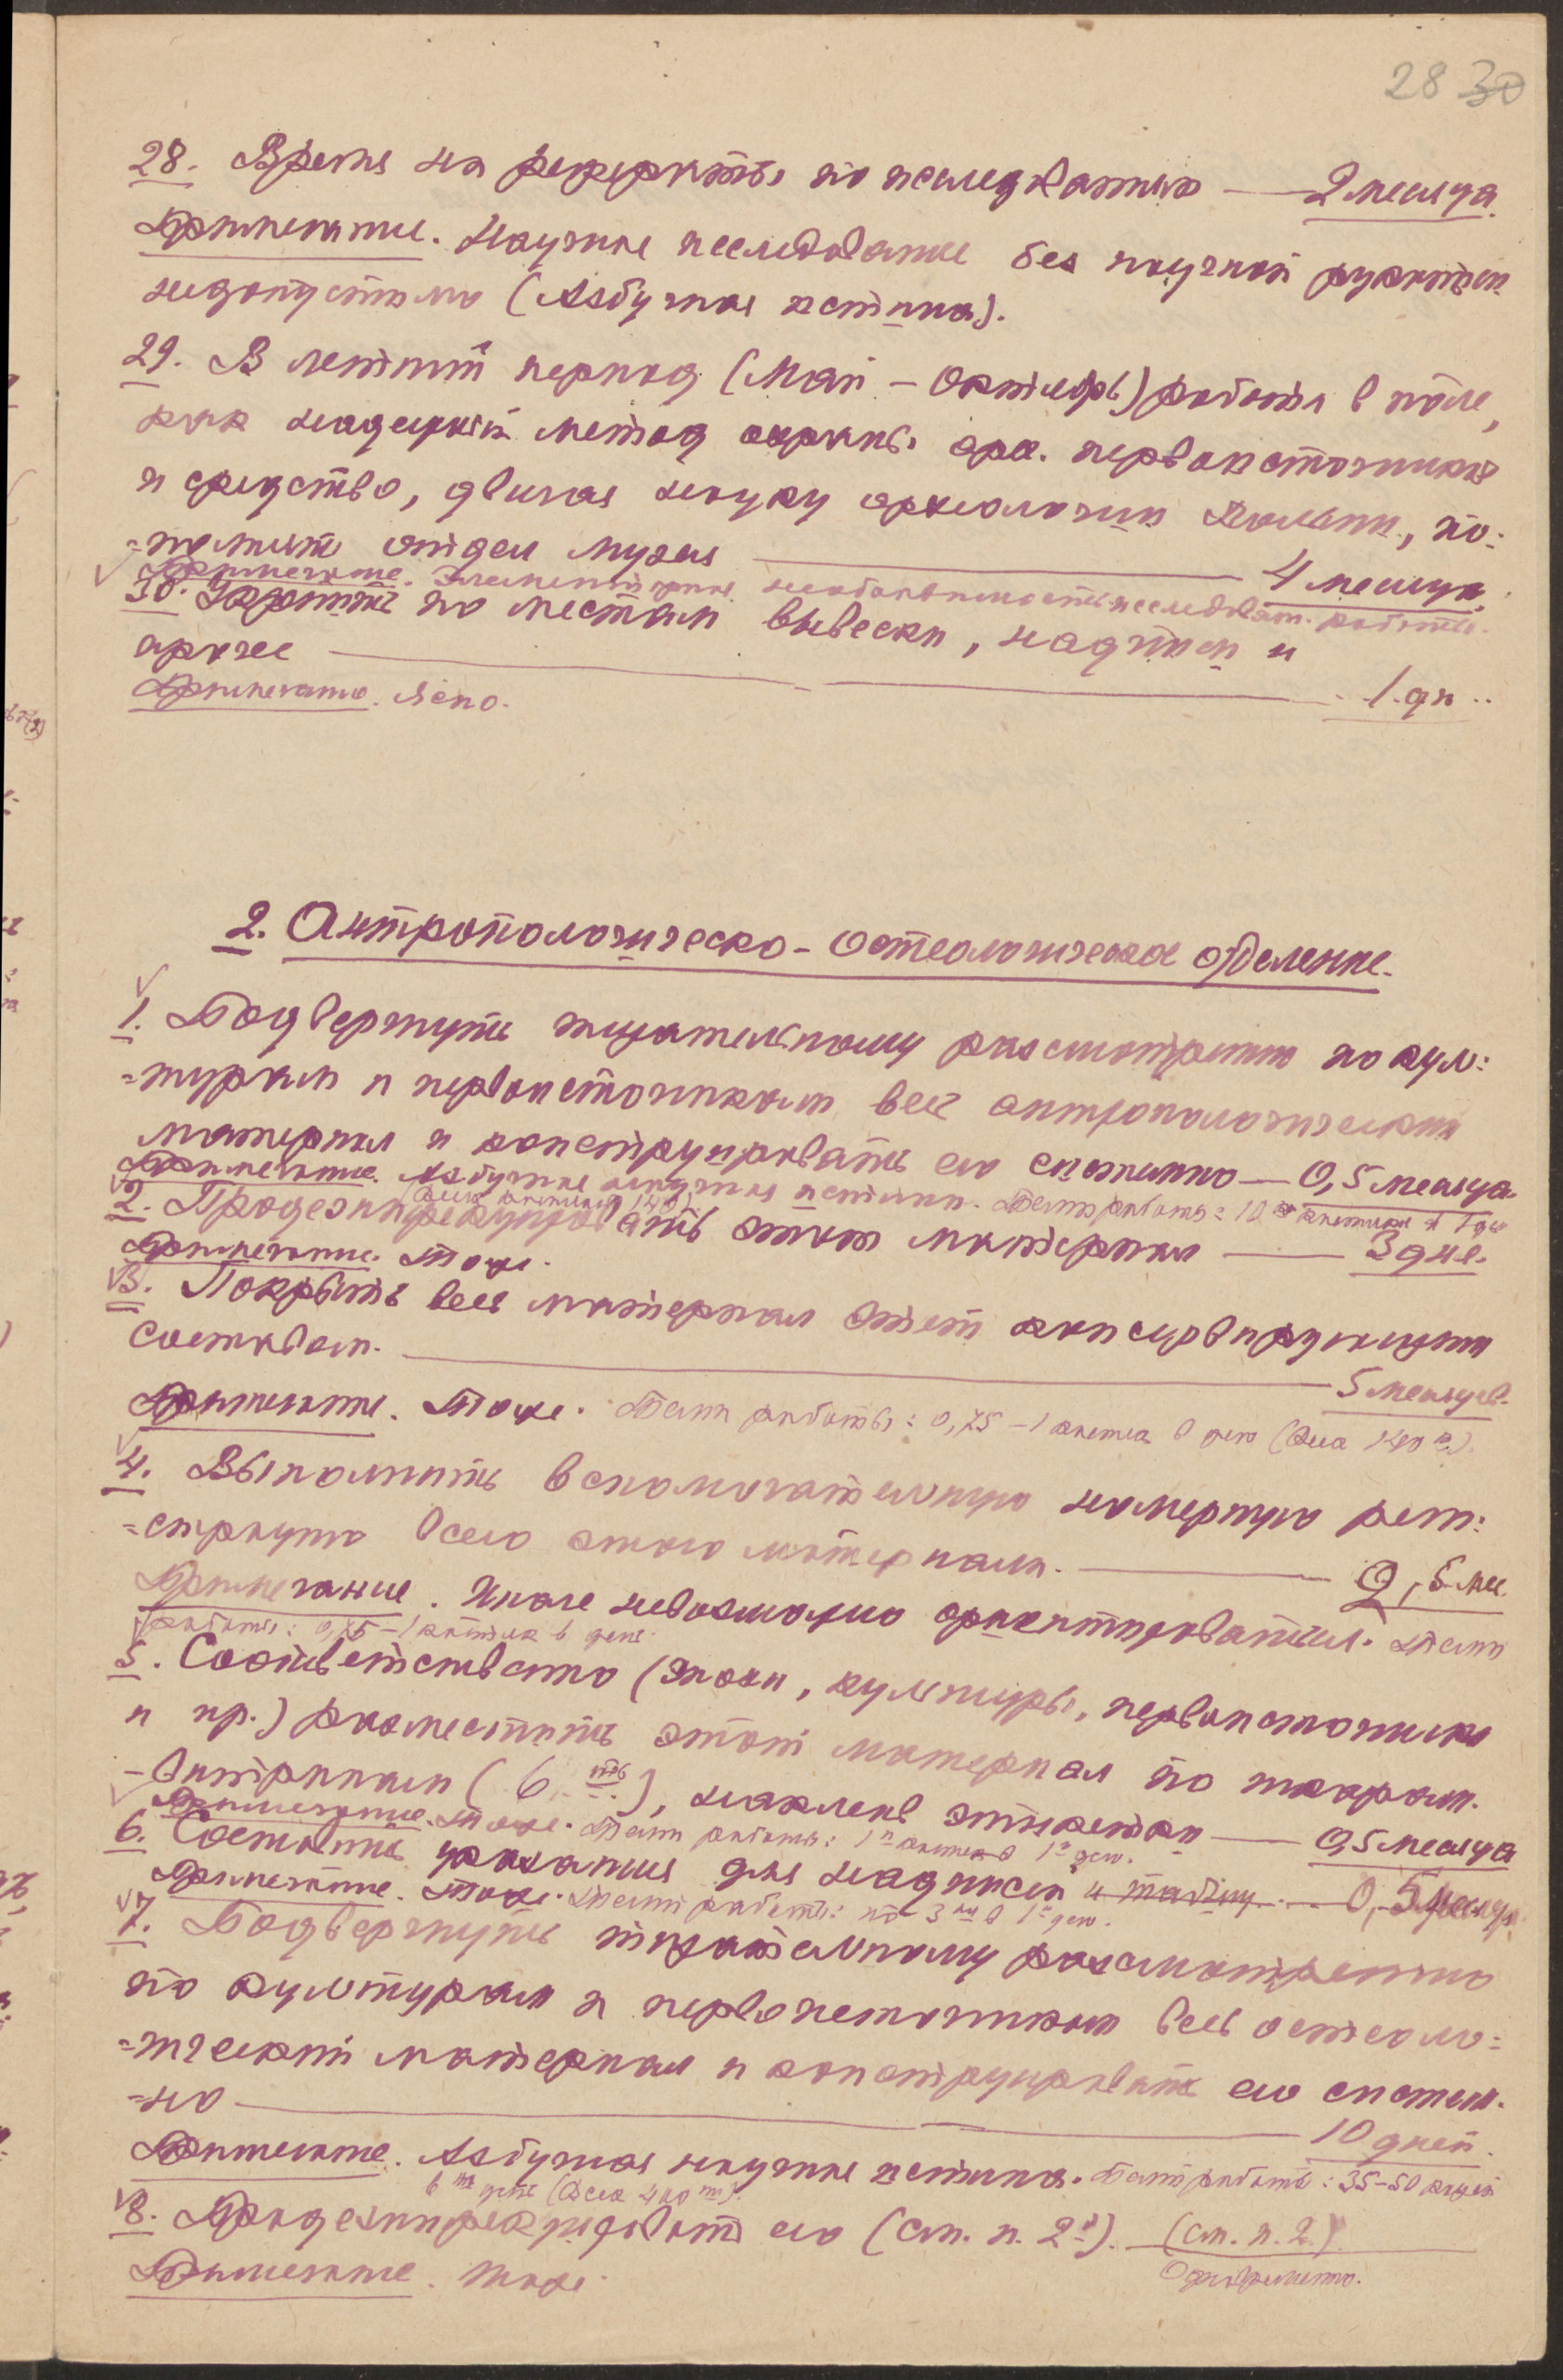 28 30
28. Время на рефераты по исследованиям — 2 месяца.
Примечание. Научные исследование без научной
недопустимо (Азбучная истина).
29. В летний период (Май – Октябрь) работа в поле,
как надежный метод охраны арх. первоисточников
и средство, двигая науку археологии Волыни, по-
=полнить отдел музея — 4 месяца.
Примечание. Элементарная необходимость исследоват. работы.
30. Укрепить по местам вывески, надписи и
прочее — 1 дн..
Примечание. Ясно.
2. Антропологическо-Остеологическое отделение.
1. Подвергнуть тщательному рассмотрению по куль=
=турам и первоисточникам весь антропологический
материал и конструировать его системно — 0,5 месяца.
Примечание. Азбучная научная истина. Темп работы: 10
2. Продезинфекцировать этот материал — 3 дня.
Примечание. Тоже.
3. Покрыть весь материал этот консервирующим
составом. — 5 месяцев.
Примечание. Тоже. Темп работы: 0,75 – 1 в день
4. Выполнить вспомогательную номерную реги=
=страцию всего этого материала. — 2,5 мес.
Примечание. Иначе невозможно ориентироваться. Темп
работы: 0,75 – 1 в день.
5. Соответственно (эпохи, культуры, первоисточники
и пр.) разместить этот материал по шкафам.
–витринам (6), наклеив этикетки — 0,5 месяца
Примечание. Тоже. Темп работы: 1 в 1 день.
6. Составить указания для надписей и таблиц. — 0,5 месяц.
Примечание. Тоже. Темп работы: по 3 в 1 день.
7. Подвергнуть тщательному рассмотрению
по культурам и первоисточникам весь остеоло=
=гический материал и конструировать его систем.
=но — 10 дней.
Примечание. Азбучная научная истина. Темп работы: 35–50
в день (Всех 400)
8. Продезинфекцировать его (см. п. 2й). (см. п. 2.)
Примечание. Тоже. Одновременно.